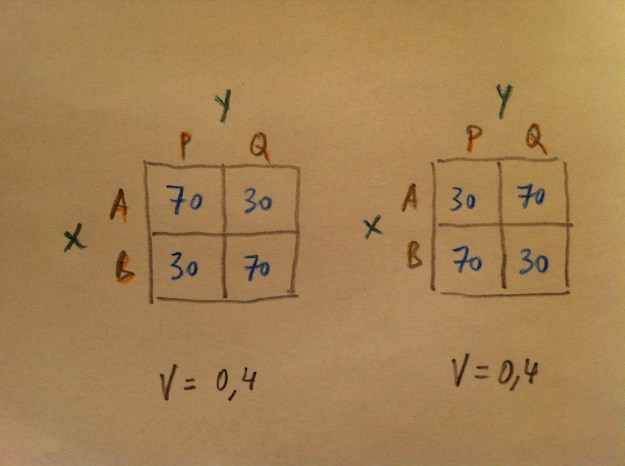 Y Y
P Q P Q
A 70 30 A 30 70
X X
B 30 70 B 70 30
V = 0,4 V = 0,4